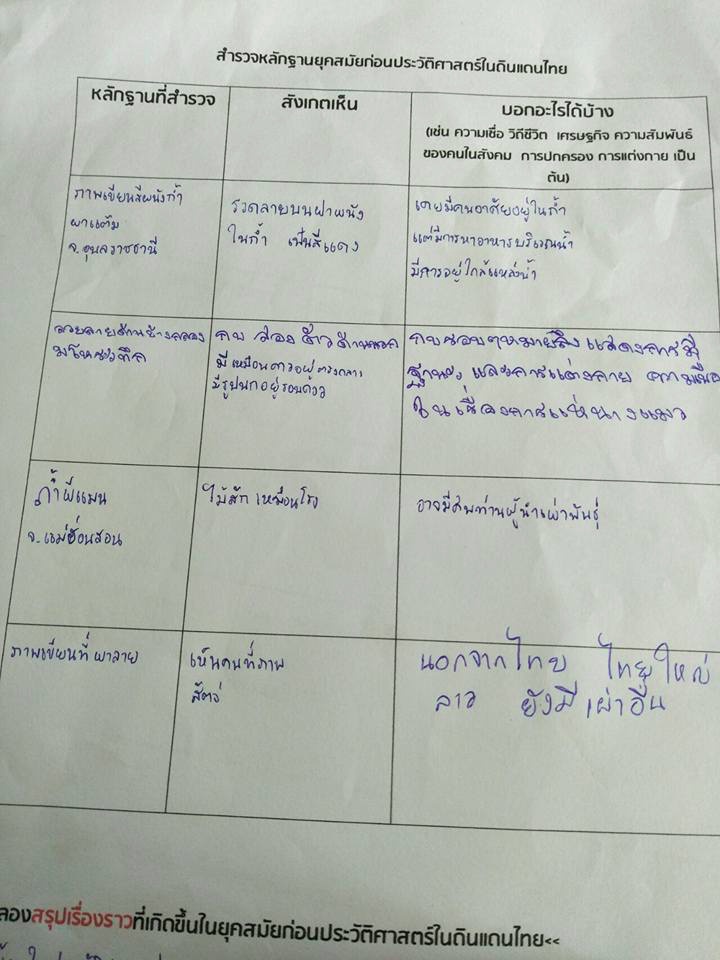 สำรวจหลักฐานยุคสมัยก่อนประวัติศาสตร์ในดินแดนไทย
หลักฐานที่สำรวจ
สังเกตเห็น
บอกอะไรได้บ้าง
(เช่น ความเชื่อ วิถีชีวิต เศรษฐกิจ ความสัมพันธ์
ของคนในสังคม การปกครอง การแต่งกาย เป็น
ต้น)
ภาพเขียนสีผนังถ้ำ
ผาแต้ม
จ.อุบลราชธานี
ลวดลายบนฝาผนัง
ในถ้ำ เป็นสีแดง
เคยมีคนอาศัยอยู่ในถ้ำ
แต่มีการหาอาหารบริเวณน้ำ
มีการอยู่ใกล้แหล่งน้ำ
ลวดลายด้านข้างกลอง
มโหระทึก
กบ
มีเหมือนดาวอยู่ตรงกลาง
มีรูปนกอยู่รอบดาว
กบ แสดงการมี
ฐานะ และการแต่งกาย ความเชื่อ
ในเรื่องการแห่นางแมว
ถ้ำผีแมน
จ.แม่ฮ่องสอน
ไม้สัก เหมือนโรง
อาจมีศพท่านผู้นำเผ่าพันธุ์
ภาพเขียนที่ ผาลาย
เห็นคนที่ภาพ
สัตว์
นอกจากไทย ไทยใหญ่
ลาว ยังมีเผ่าอื่น
ลองสรุปเรื่องราวที่เกิดขึ้นในยุคสมัยก่อนประวัติศาสตร์ในดินแดนไทย<<